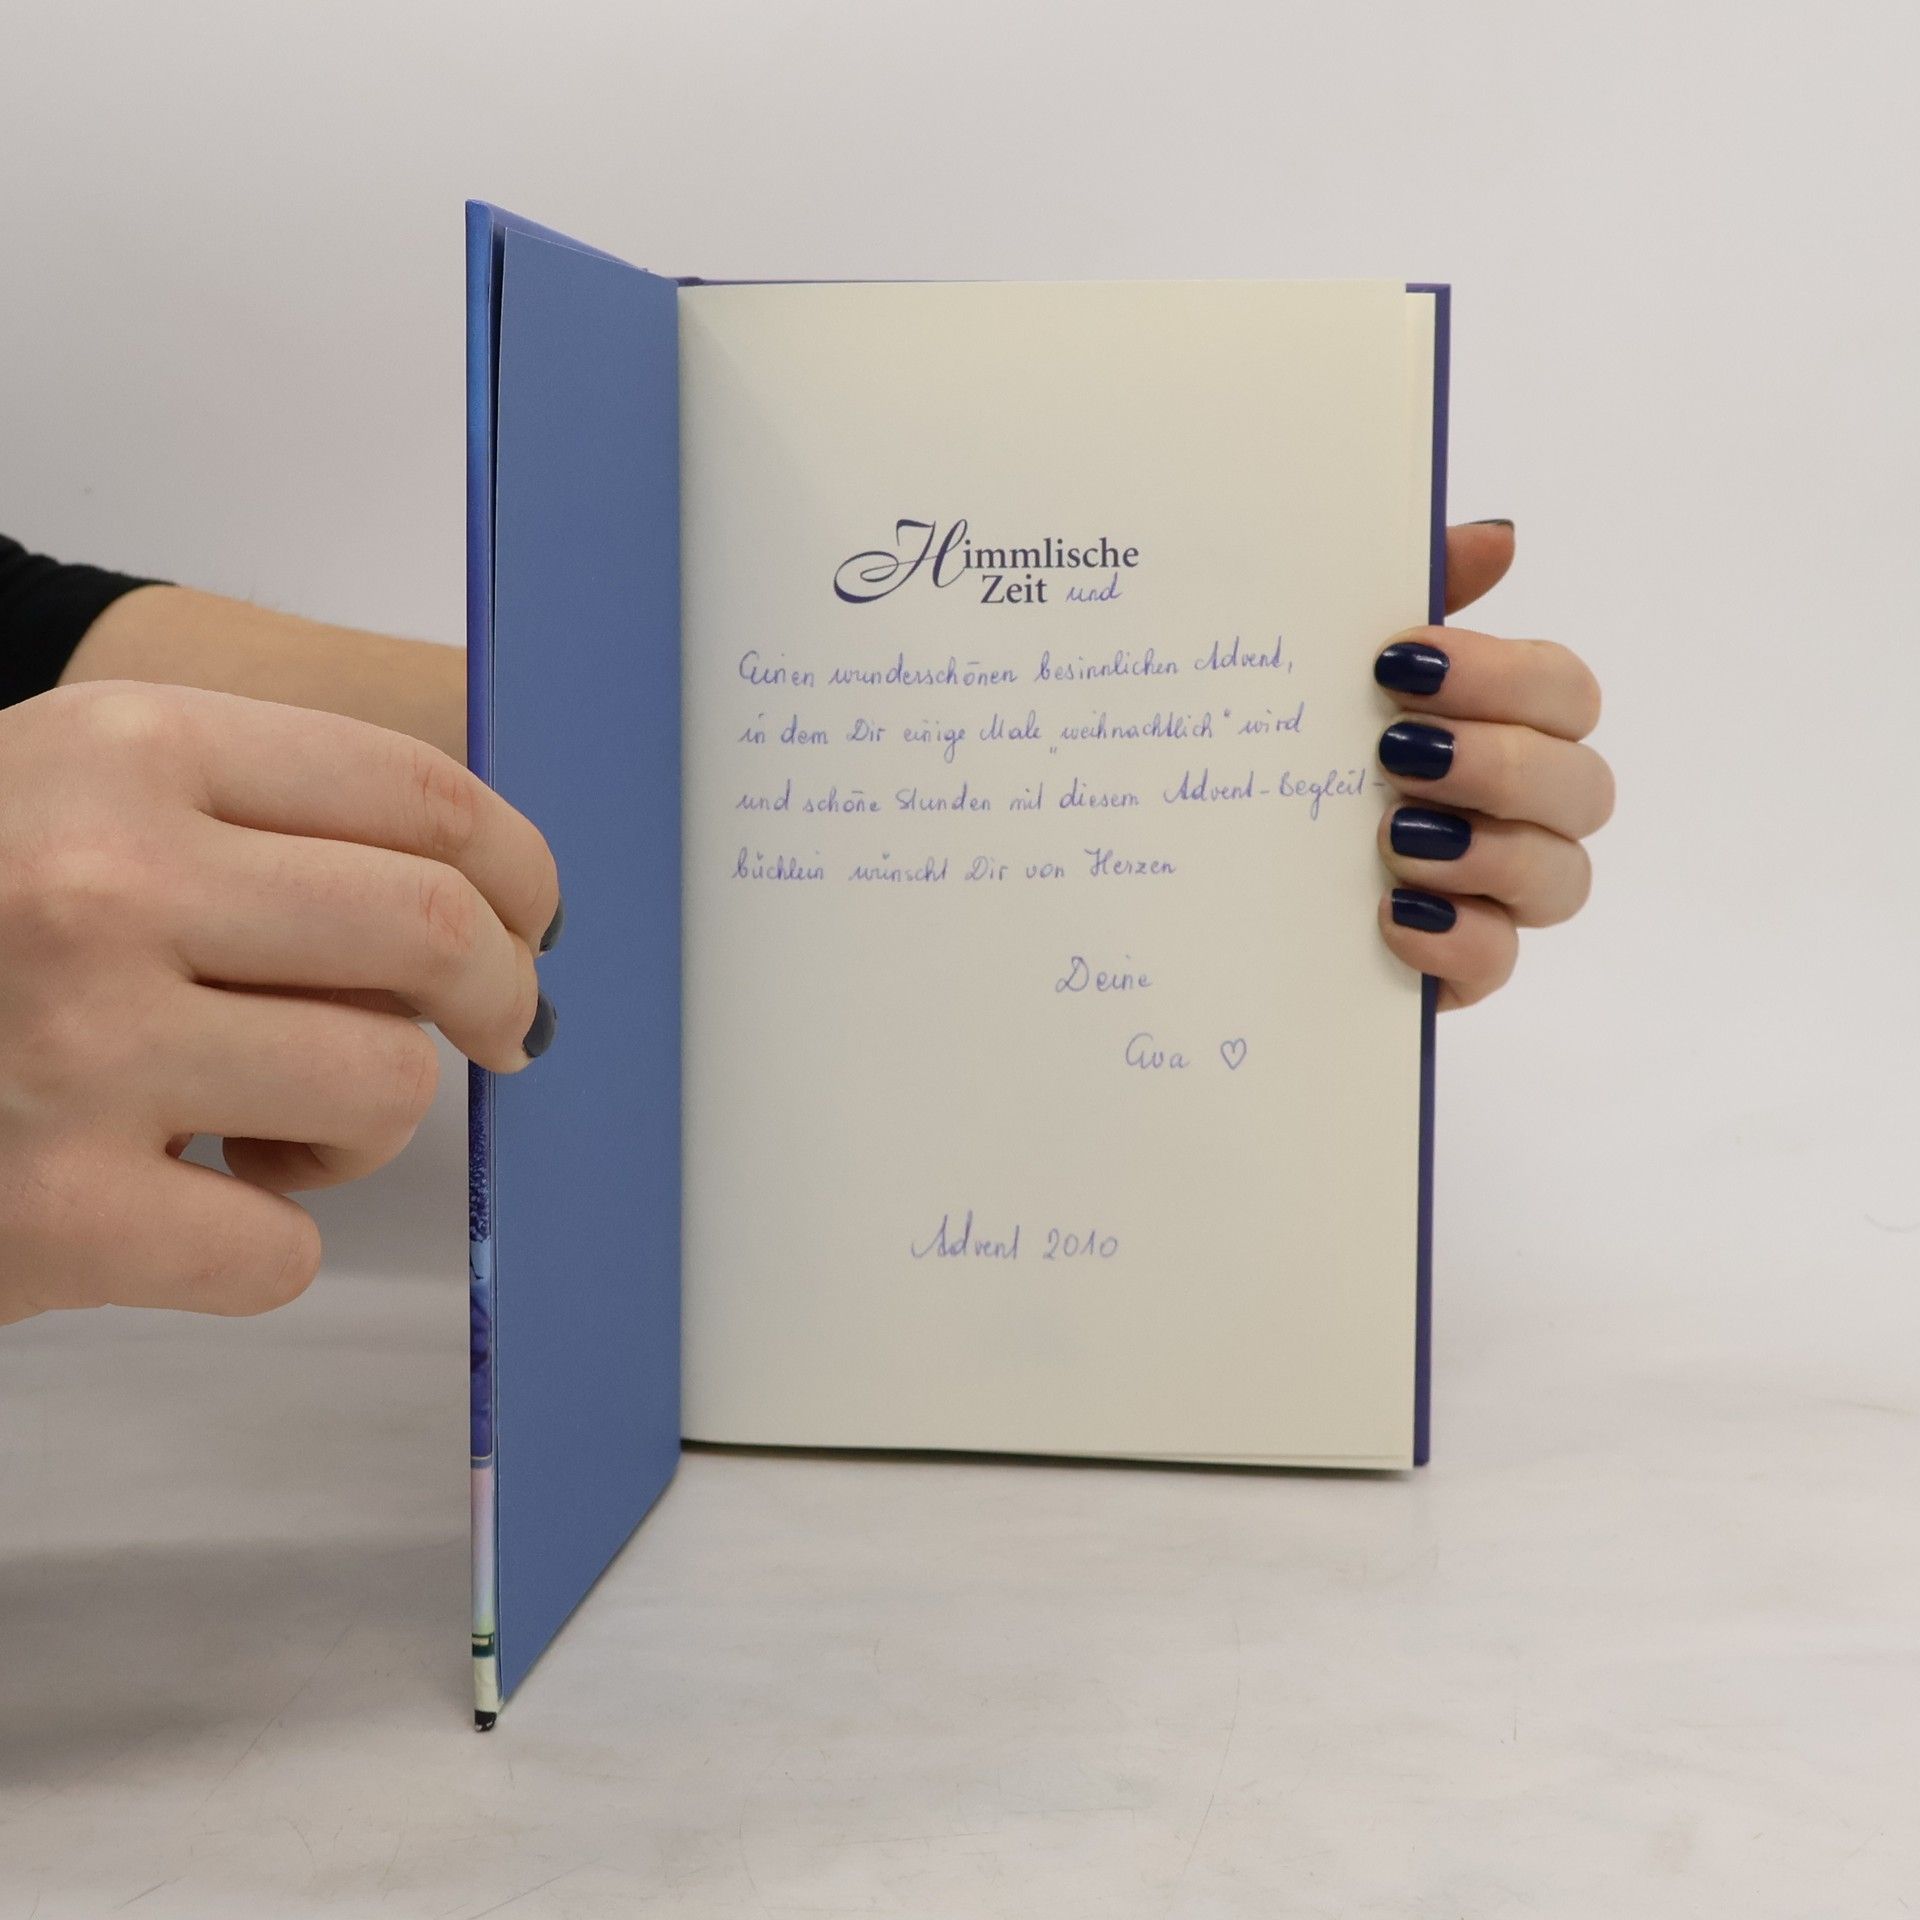 Himmlische
Zeit und
Einen wunderschönen besinnlichen Advent,
in dem Dir einige Male „weihnachtlich“ wird
und schöne Stunden mit diesem Advent-Begleit-
büchlein wünscht Dir von Herzen
Deine
Eva ♡
Advent 2010